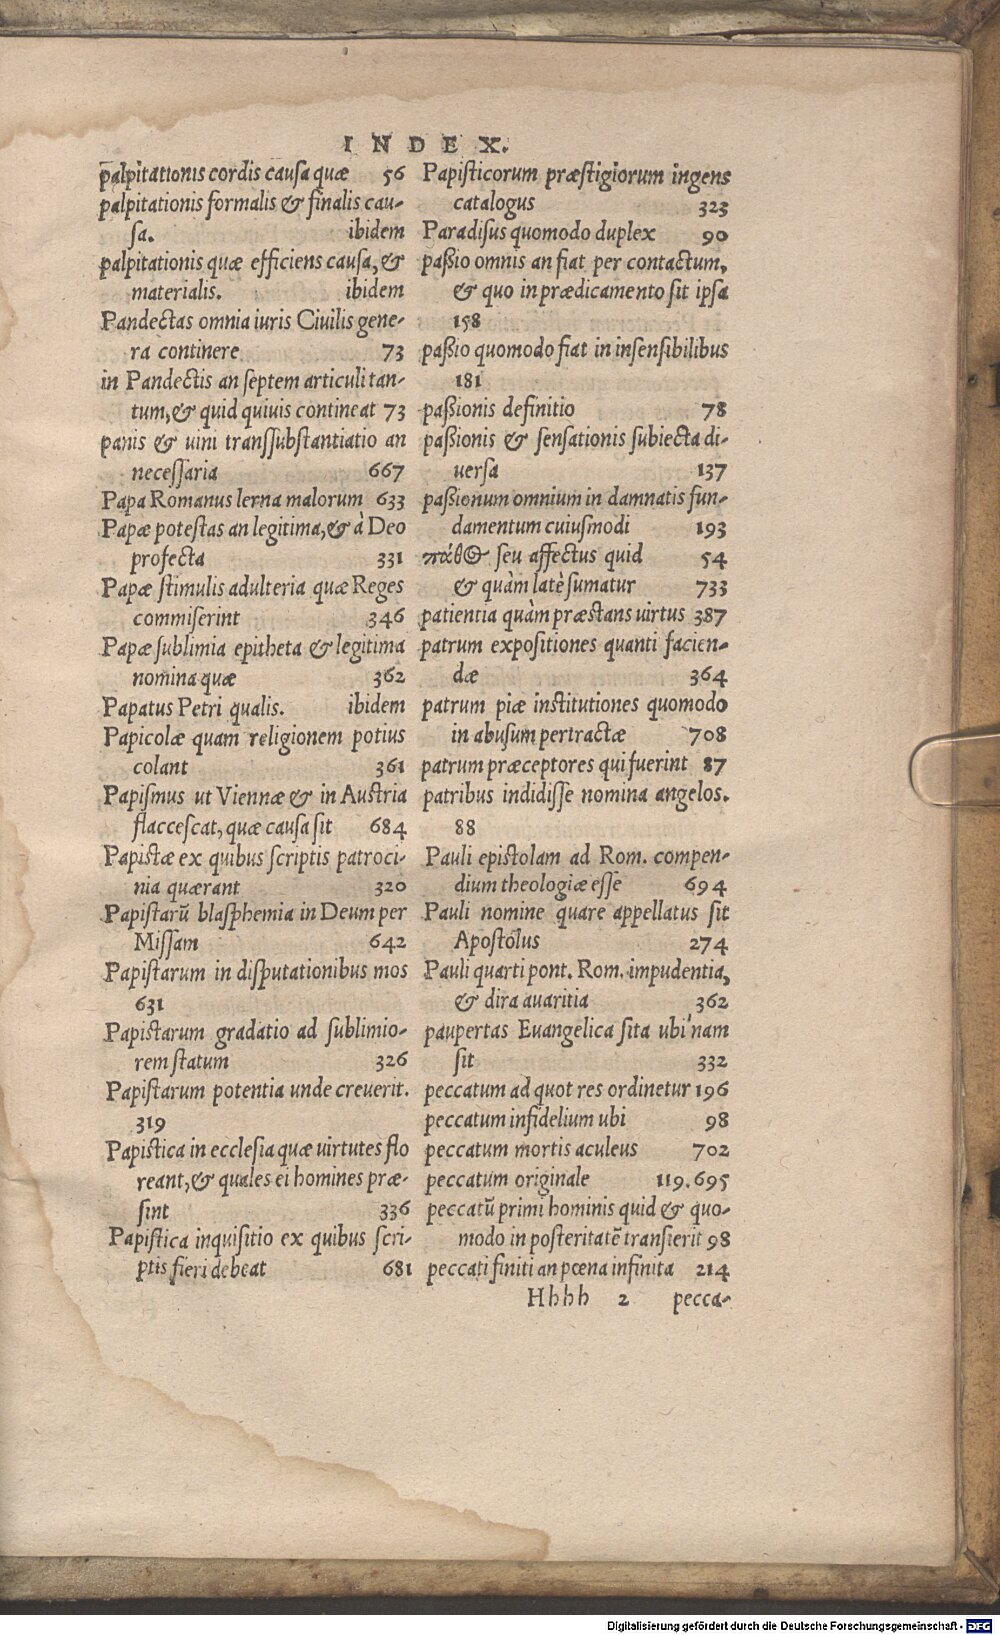 INDEX.
palpitationis cordis causa quæ 56
palpitationis formalis & finalis cau-
sa. ibidem
palpitationis quæ efficiens causa, &
materialis. ibidem
Pandectas omnia iuris Ciuilis gene-
ra continere 73
in Pandectis an septem articuli tan-
tum, & quid quiuis contineat 73
panis & uini transsubstantiatio an
necessaria 667
Papa Romanus lerna malorum 633
Papæ potestas an legitima, & à Deo
profecta 331
Papæ stimulis adulteria quæ Reges
commiserint 346
Papæ sublimia epitheta & legitima
nomina quæ 362
Papatus Petri qualis. ibidem
Papicolæ quam religionem potius
colant 361
Papismus ut Viennæ & in Austria
flaccescat, quæ causa sit 684
Papistæ ex quibus scriptis patroci-
nia quærant 320
Papistarū blasphemia in Deum per
Missam 642
Papistarum in disputationibus mos
631
Papistarum gradatio ad sublimio-
rem statum 326
Papistarum potentia unde creuerit.
319
Papistica in ecclesia quæ uirtutes flo
reant, & quales ei homines præ-
sint 336
Papistica inquisitio ex quibus scri-
ptis fieri debeat 681
Papisticorum præstigiorum ingens
catalogus 323
Paradisus quomodo duplex 90
paßio omnis an fiat per contactum,
& quo in prædicamento sit ipsa
158
paßio quomodo fiat in insensibilibus
181
paßionis definitio 78
paßionis & sensationis subiecta di-
uersa 137
paßionum omnium in damnatis fun-
damentum cuiusmodi 193
πάθος seu affectus quid 54
& quàm latè sumatur 733
patientia quàm præstans uirtus 387
patrum expositiones quanti facien-
dæ 364
patrum piæ institutiones quomodo
in abusum pertractæ 708
patrum præceptores qui fuerint 87
patribus indidisse nomina angelos.
88
Pauli epistolam ad Rom. compen-
dium theologiæ esse 694
Pauli nomine quare appellatus sit
Apostolus 274
Pauli quarti pont. Rom. impudentia,
& dira auaritia 362
paupertas Euangelica sita ubi nam
sit 332
peccatum ad quot res ordinetur 196
peccatum infidelium ubi 98
peccatum mortis aculeus 702
peccatum originale 119.695
peccatū primi hominis quid & quo-
modo in posteritatē transierit 98
peccati finiti an pœna infinita 214
Hhhh 2 pecca-
Digitalisierung gefördert durch die Deutsche Forschungsgemeinschaft - DFG